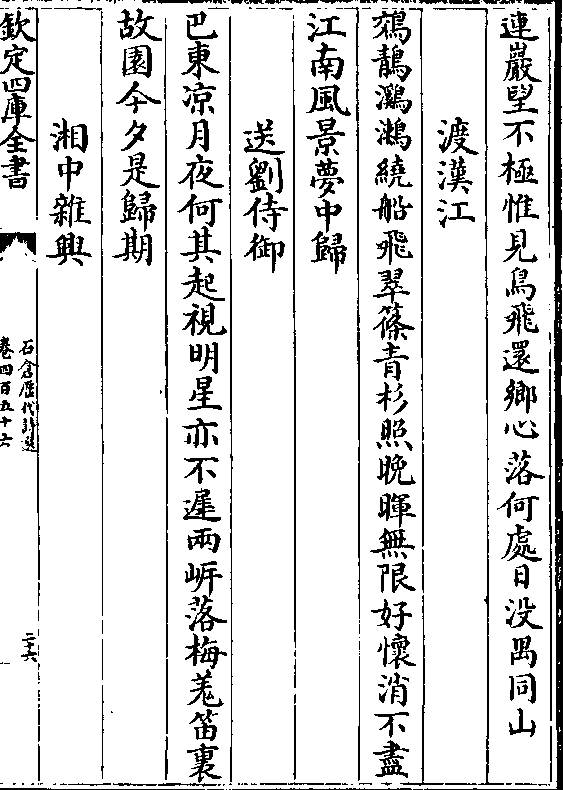 連巖望不極惟見鳥飛還鄉心落何處日没禺同山
渡漢江
鵁鶄㶉鶒繞船飛翠篠青杉照晚暉無限好懷消不盡
江南風景夢中歸
送劉侍御
巴東凉月夜何其起視明星亦不遲兩岍落梅羗笛裏
故園今夕是歸期
湘中雜興
欽定四庫全書
石倉歷代詩選
卷四百五十六
二十六